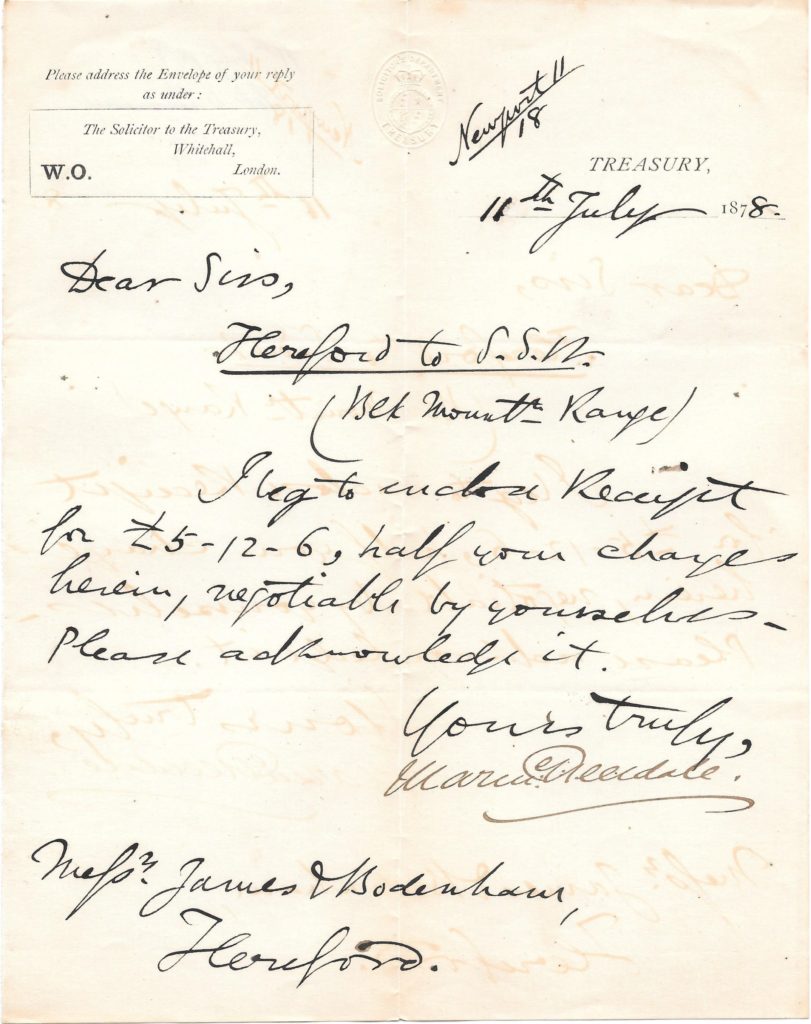 Please address the Envelope of your reply
as under:
The Solicitor to the Treasury,
Whitehall,
W.O. London.
SOLICITOR'S DEPARTMENT
TREASURY
Newport 11
18
TREASURY,
11th July 1878.
Dear Sirs,
Hereford to S.S.W.
(Blk Mountn Range)
I beg to enclose Receipt
for £5-12-6, half your charges
herein, negotiable by yourselves-
Please acknowledge it.
Yours truly,
Messrs. James & Bodenham,
Hereford.